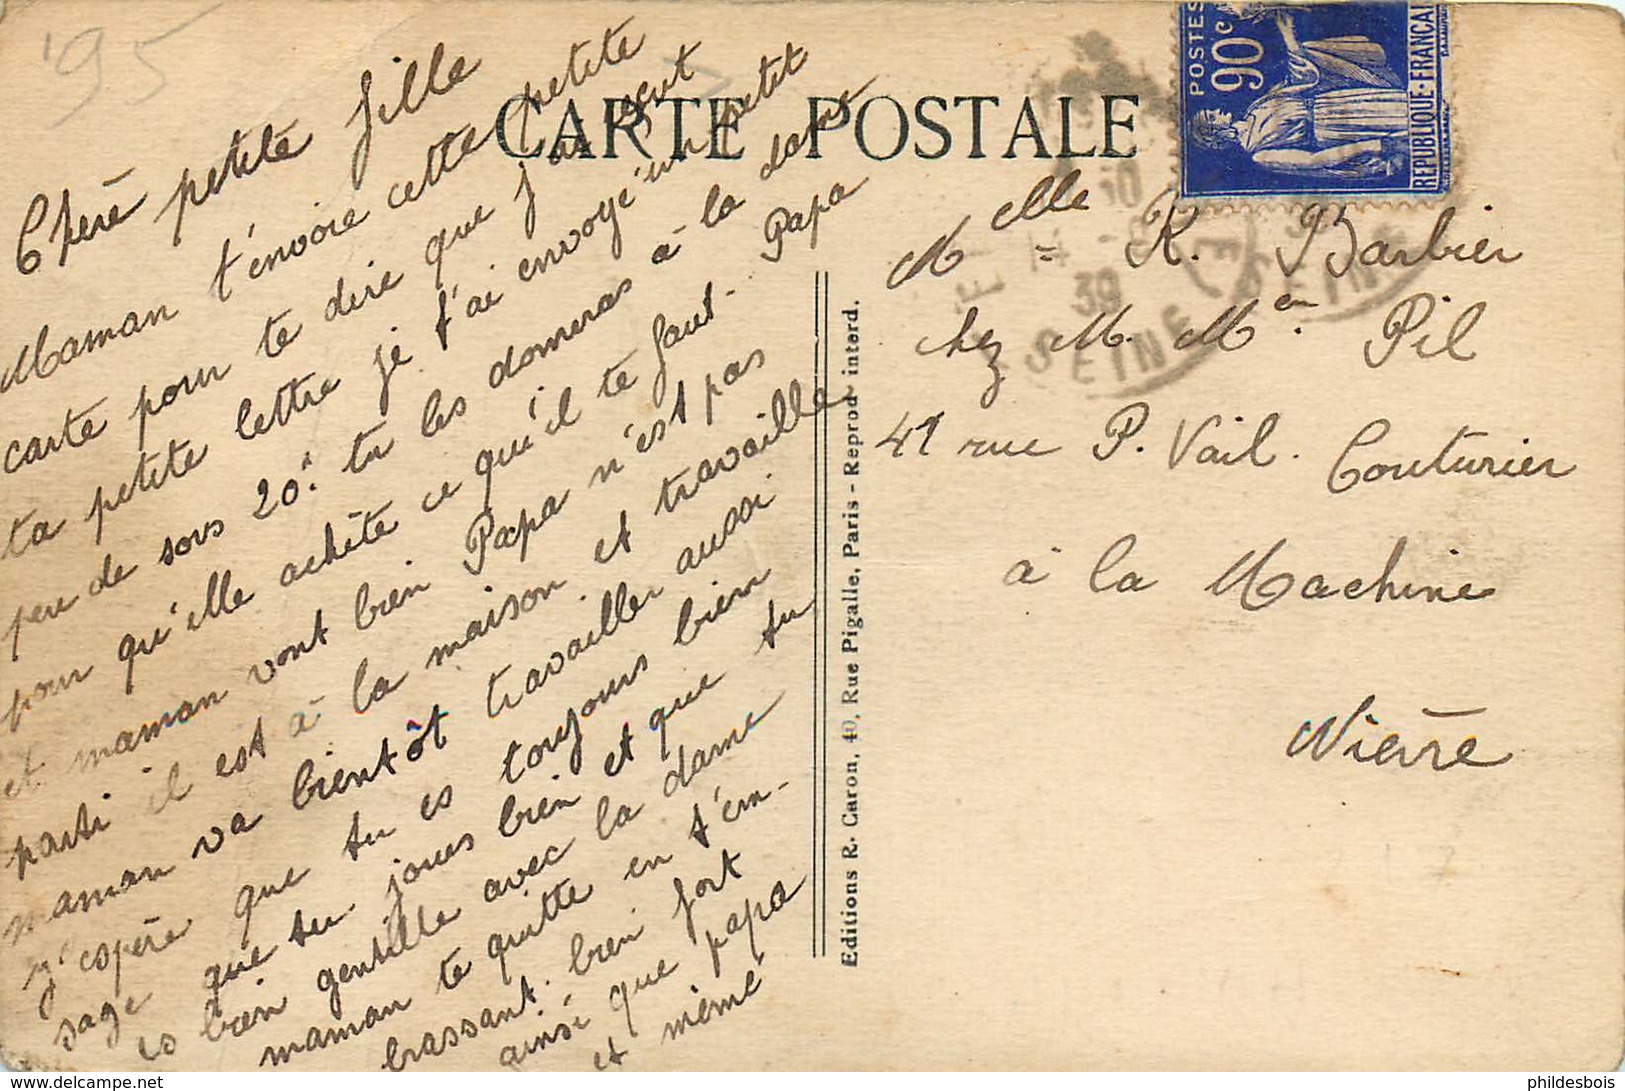 '95
CARTE POSTALE
POSTES
90c
REPUBLIQUE-FRANÇAI
Chère petite fille
Maman t'envoie cette petite
carte pour te dire que j'ai reçut
ta petite lettre je t'ai envoyé un petit
peu de sous 20f. tu les donneras à la dame
pour qu'elle achète ce qu'il te faut. Papa
et maman vont bien Papa n'est pas
parti il est à la maison et travaille
maman va bientôt travailler aussi
j'espère que tu es toujours bien
sage que tu joues bien et que tu
es bien gentille avec la dame
maman te quitte en t'em-
brassant. bien fort
ainsi que papa
et mémé
Editions R. Caron, 40, Rue Pigalle, Paris - Reprod interd.
Melle = R. Barbier
chez M. Men. Pil
41 rue P. Vail. Couturier
à la Machine
Nièvre
10
14
39
SEINE
phildesbois